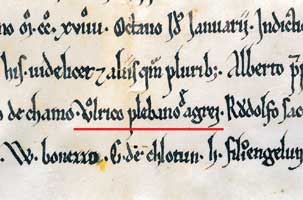 no oi. cc. xviii. Octavo Id' Januarii. Indictio
his videlicet & aliis qm plurib; Alberto p
o de chamo. Vlrico plebano agrej. Rudolfo sac
. W. bonerro. C. de chlotun. h. filio engelun